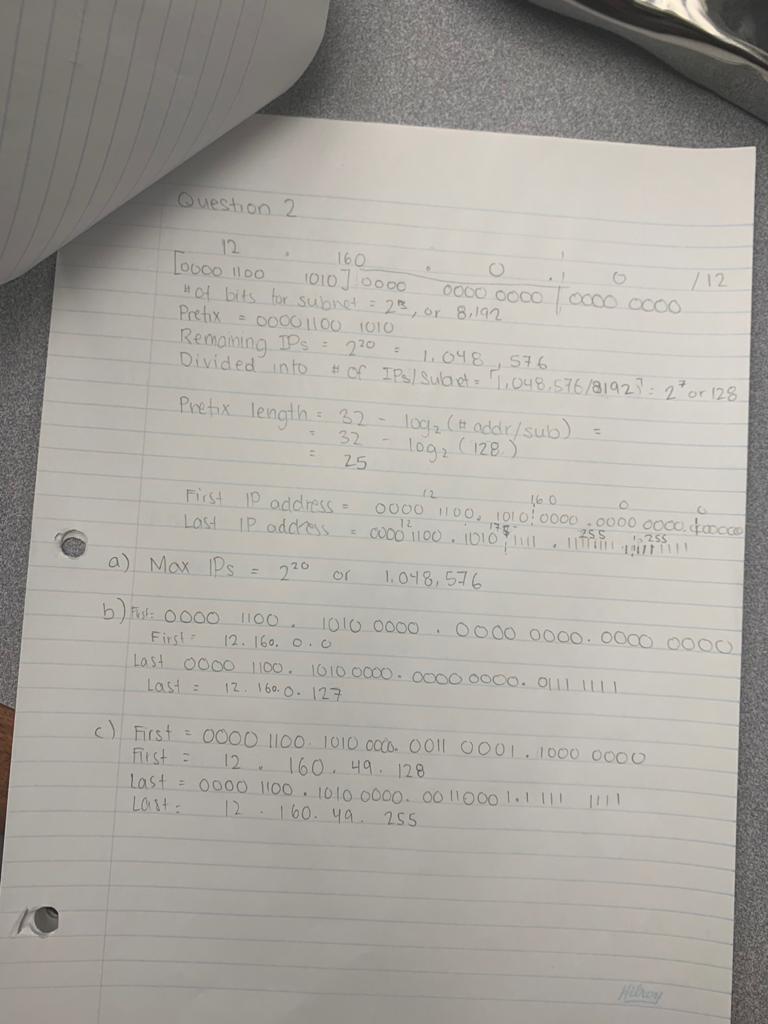 Question 2
12 . 160 . 0 . 0 /12
[0000 1100 1010] 0000 0000 0000 0000 0000
# of bits for subnet = 2¹³, or 8,192
Prefix = 0000 1100 1010
Remaining IPs = 2²⁰ = 1,048,576
Divided into # of IPs/Subnet = ⌈1,048,576/8192⌉ = 2⁷ or 128
Prefix length = 32 - log₂ (# addr/sub) =
= 32 - log₂ (128)
= 25
12 160 0 0
First IP address = 0000 1100. 1010 0000 .0000 0000.
12 255 255
Last IP address = 0000 1100 . 1010 1111 . 11111111 . 11111111
a) Max IPs = 2²⁰ or 1,048,576
b) First: 0000 1100 . 1010 0000 . 0000 0000. 0000 0000
First = 12. 160. 0. 0
Last 0000 1100. 1010 0000. 0000 0000. 0111 1111
Last = 12. 160. 0. 127
c) First = 0000 1100. 1010 0000. 0011 0001 . 1000 0000
First = 12 . 160 . 49 . 128
Last = 0000 1100 . 1010 0000. 0011000 1. 1 111 1111
Last = 12 . 160. 49. 255
Hilroy